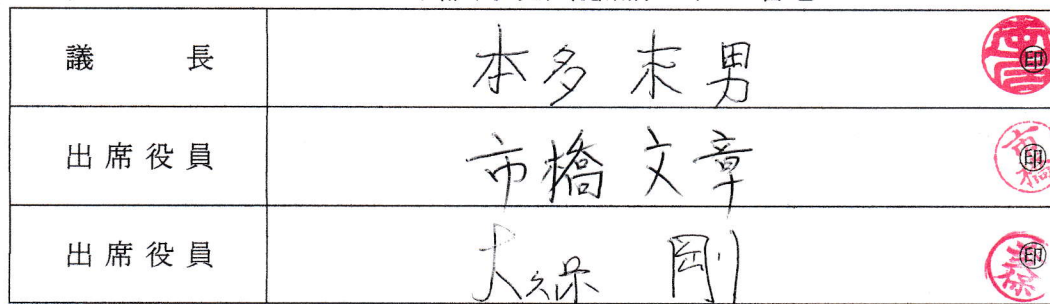 議長 本多末男 ㊞
出席役員 市橋文章 ㊞
出席役員 大久保 剛 ㊞